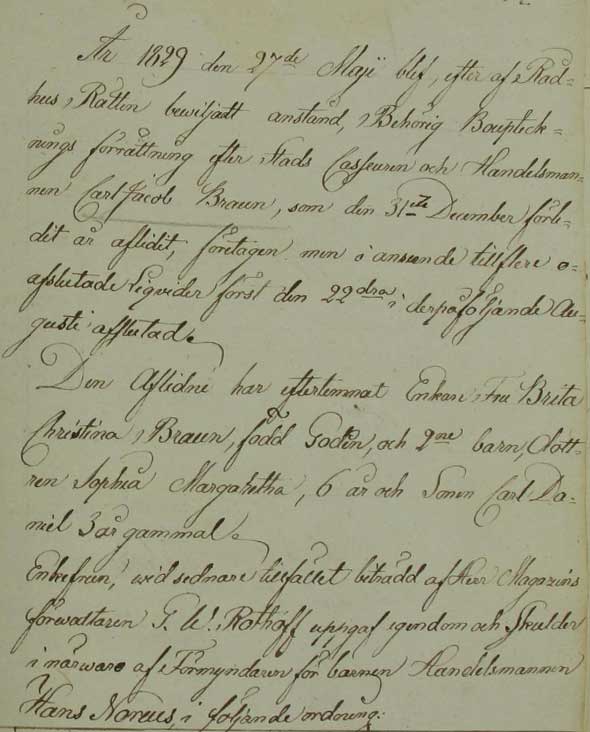 År 1829 den 27de Maji blef, efter af Råd=
hus Rätten bewiljadt anstånd, Behörig Boupteck=
nings förrättning efter Stads Casseuren och Handelsman=
nen Carl Jacob Braun, som den 31ste December förle=
dit år aflidit, företagen men i anseende till flere o=
afslutade Liqvider först den 22dra i derpåföljande Au=
gusti afslutad.
Den Aflidne har efterlemnat Enkan Fru Brita
Christina Braun, född Godén, och 2ne barn, Dott=
ren Sophia Margaretha, 6 år och Sonen Carl Da=
niel 3 år gammal.
Enkefrun, wid sednare tillfället biträdd af Herr Magazins
förwaltaren G. W. Rothoff uppgaf egendom och Skulder
i närwaro af Förmyndaren för barnen Handelsmannen
Hans Noræus, i följande ordning: